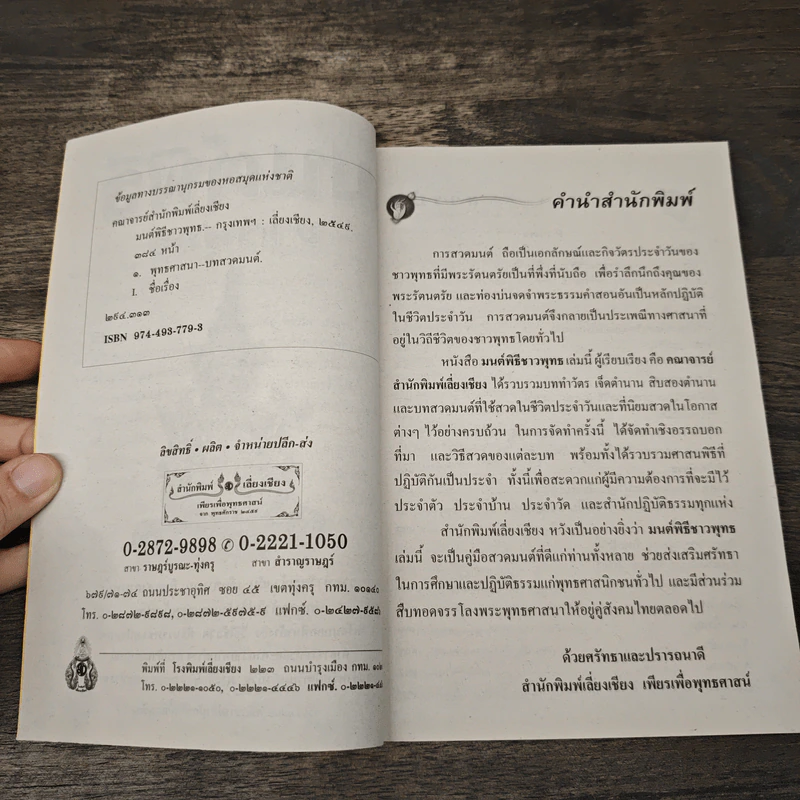 ข้อมูลทางบรรณานุกรมของหอสมุดแห่งชาติ
คณาจารย์สำนักพิมพ์เลี่ยงเชียง
มนต์พิธีชาวพุทธ.-- กรุงเทพฯ : เลี่ยงเชียง, ๒๕๔๙.
๓๘๔ หน้า
๑. พุทธศาสนา--บทสวดมนต์.
I. ชื่อเรื่อง
๒๙๔.๓๑๓
ISBN 974-493-779-3
ลิขสิทธิ์ • ผลิต • จำหน่ายปลีก-ส่ง
สำนักพิมพ์ เลี่ยงเชียง
เพียรเพื่อพุทธศาสน์
0-2872-9898 ✆ 0-2221-1050
สาขา ราษฎร์บูรณะ-ทุ่งครุ สาขา สำราญราษฎร์
๖๗๙/๗๑-๗๔ ถนนประชาอุทิศ ซอย ๔๕ เขตทุ่งครุ กทม. ๑๐๑๔๐
โทร. ๐-๒๘๗๒-๙๘๙๘, ๐-๒๘๗๒-๕๙๗๕-๙ แฟกซ์.
พิมพ์ที่ โรงพิมพ์เลี่ยงเชียง ๒๒๓ ถนนบำรุงเมือง กทม.
โทร. ๐-๒๒๒๑-๑๐๕๐, ๐-๒๒๒๑-๔๔๔๖ แฟกซ์.
คำนำสำนักพิมพ์
การสวดมนต์ ถือเป็นเอกลักษณ์และกิจวัตรประจำวันของ
ชาวพุทธที่มีพระรัตนตรัยเป็นที่พึ่งที่นับถือ เพื่อรำลึกนึกถึงคุณของ
พระรัตนตรัย และท่องบ่นจดจำพระธรรมคำสอนอันเป็นหลักปฏิบัติ
ในชีวิตประจำวัน การสวดมนต์จึงกลายเป็นประเพณีทางศาสนาที่
อยู่ในวิถีชีวิตของชาวพุทธโดยทั่วไป
หนังสือ มนต์พิธีชาวพุทธ เล่มนี้ ผู้เรียบเรียง คือ คณาจารย์
สำนักพิมพ์เลี่ยงเชียง ได้รวบรวมบททำวัตร เจ็ดตำนาน สิบสองตำนาน
และบทสวดมนต์ที่ใช้สวดในชีวิตประจำวันและที่นิยมสวดในโอกาส
ต่างๆ ไว้อย่างครบถ้วน ในการจัดทำครั้งนี้ ได้จัดทำเชิงอรรถบอก
ที่มา และวิธีสวดของแต่ละบท พร้อมทั้งได้รวบรวมศาสนพิธีที่
ปฏิบัติกันเป็นประจำ ทั้งนี้เพื่อสะดวกแก่ผู้มีความต้องการที่จะมีไว้
ประจำตัว ประจำบ้าน ประจำวัด และสำนักปฏิบัติธรรมทุกแห่ง
สำนักพิมพ์เลี่ยงเชียง หวังเป็นอย่างยิ่งว่า มนต์พิธีชาวพุทธ
เล่มนี้ จะเป็นคู่มือสวดมนต์ที่ดีแก่ท่านทั้งหลาย ช่วยส่งเสริมศรัทธา
ในการศึกษาและปฏิบัติธรรมแก่พุทธศาสนิกชนทั่วไป และมีส่วนร่วม
สืบทอดจรรโลงพระพุทธศาสนาให้อยู่คู่สังคมไทยตลอดไป
ด้วยศรัทธาและปรารถนาดี
สำนักพิมพ์เลี่ยงเชียง เพียรเพื่อพุทธศาสน์